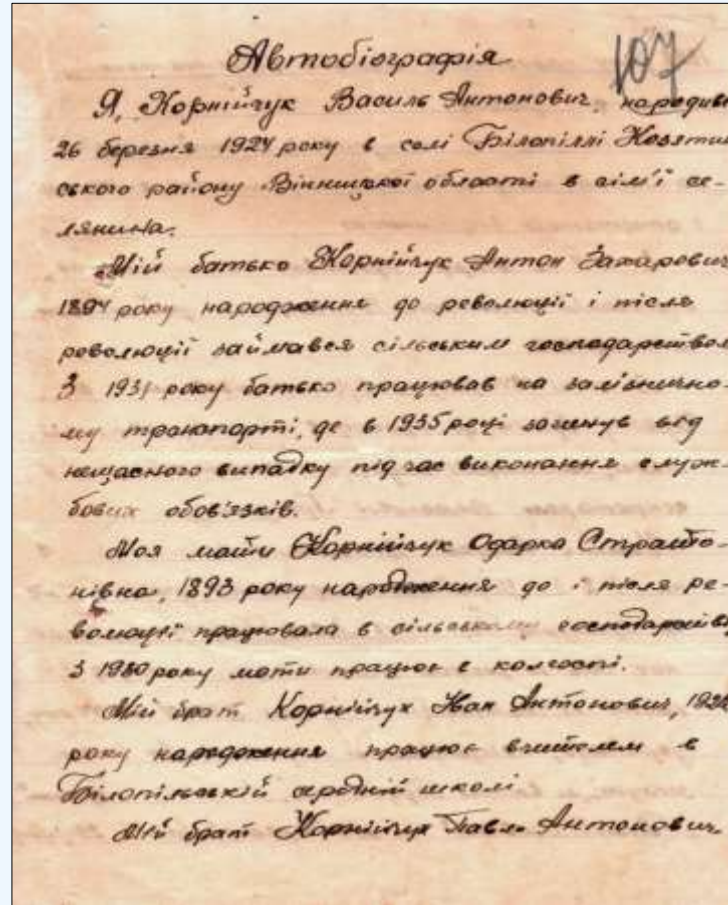 Автобіографія
107
Я, Корнійчук Василь Антонович, народивс
26 березня 1924 року в селі Білопіллі Козятин
ського району Вінницької області в сім'ї се-
лянина.
Мій батько Корнійчук Антон Захарович
1894 року народження до революції і після
революції займався сільським господарством
З 1931 року батько працював на залізнично-
му транспорті, де в 1935 році загинув від
нещасного випадку під час виконання служ-
бових обов'язків.
Моя мати Корнійчук Одарка
нівна, 1893 року народження до і після ре-
волюції працювала в сільському господарстві
З 1930 року мати працює в колгоспі.
Мій брат Корнійчук Іван Антонович,
року народження працює вчителем в
Білопільській середній школі
Мій брат Корнійчук Павло Антонович